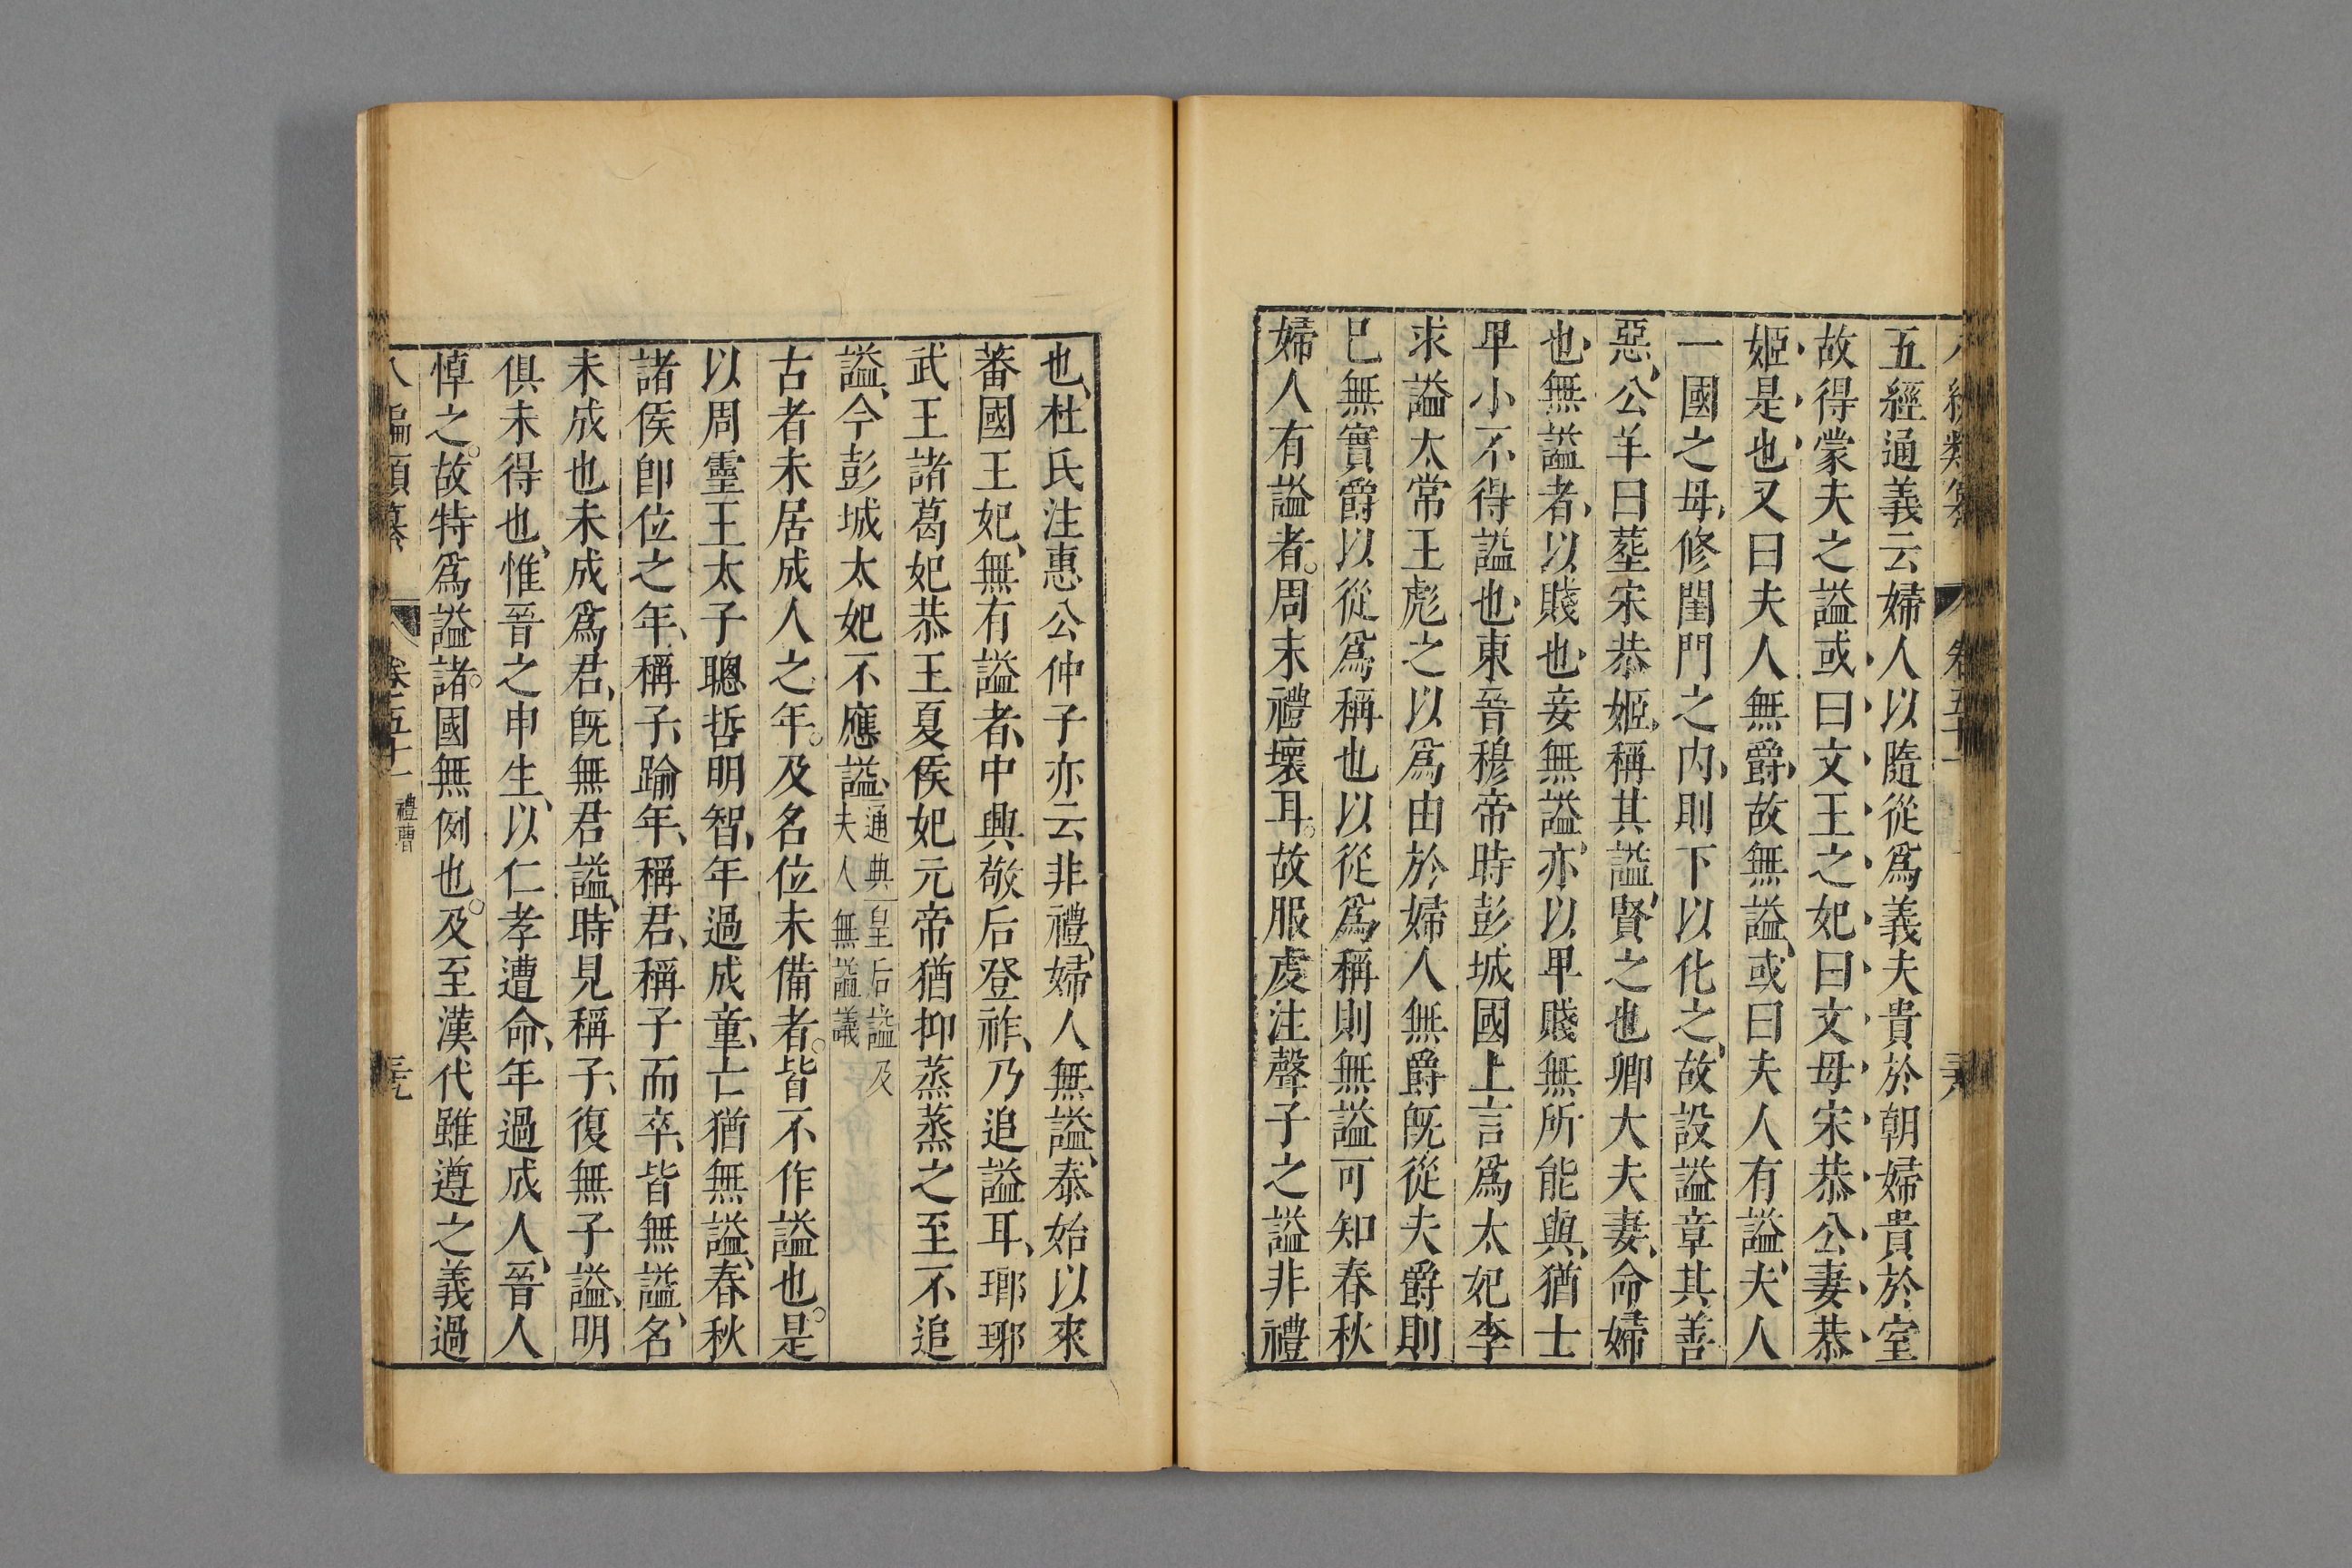 五經通義云婦人以隨從爲義夫貴於朝婦貴於室
故得蒙夫之謚或曰文王之妃曰文母宋恭公妻恭
姬是也又曰夫人無爵故無謚或曰夫人有謚夫人
一國之母修閨門之内則下以化之故設謚章其善
惡公羊曰葬宋恭姬稱其謚賢之也卿大夫妻命婦
也無謚者以賤也妾無謚亦以卑賤無所能與猶士
卑小不得謚也東晉穆帝時彭城國上言爲太妃李
求謚太常王彪之以爲由於婦人無爵旣從夫爵則
已無實爵以從爲稱也以從爲稱則無謚可知春秋
婦人有謚者。周末禮壞耳。故服虔注聲子之謚非禮
也、杜氏注惠公仲子亦云非禮、婦人無謚、泰始以來
蕃國王妃、無有謚者、中興敬后登祚、乃追謚耳、瑯琊
武王諸葛妃恭王夏侯妃元帝猶抑蒸蒸之至不追
謚、今彭城太妃不應謚、通典皇后謚及
夫人無謚議
古者未居成人之年。及名位未備者。皆不作謚也。是
以周靈王太子聰哲明智、年過成童、亡猶無謚、春秋
諸侯卽位之年、稱子、踰年、稱君、稱子而卒、皆無謚、名
未成也未成爲君、旣無君謚、時見稱子、復無子謚、明
俱未得也、惟晉之申生、以仁孝遭命、年過成人、晉人
悼之。故特爲謚諸。國無例也。及至漢代雖遵之義過
八編類纂 卷五十一 禮曹 三九